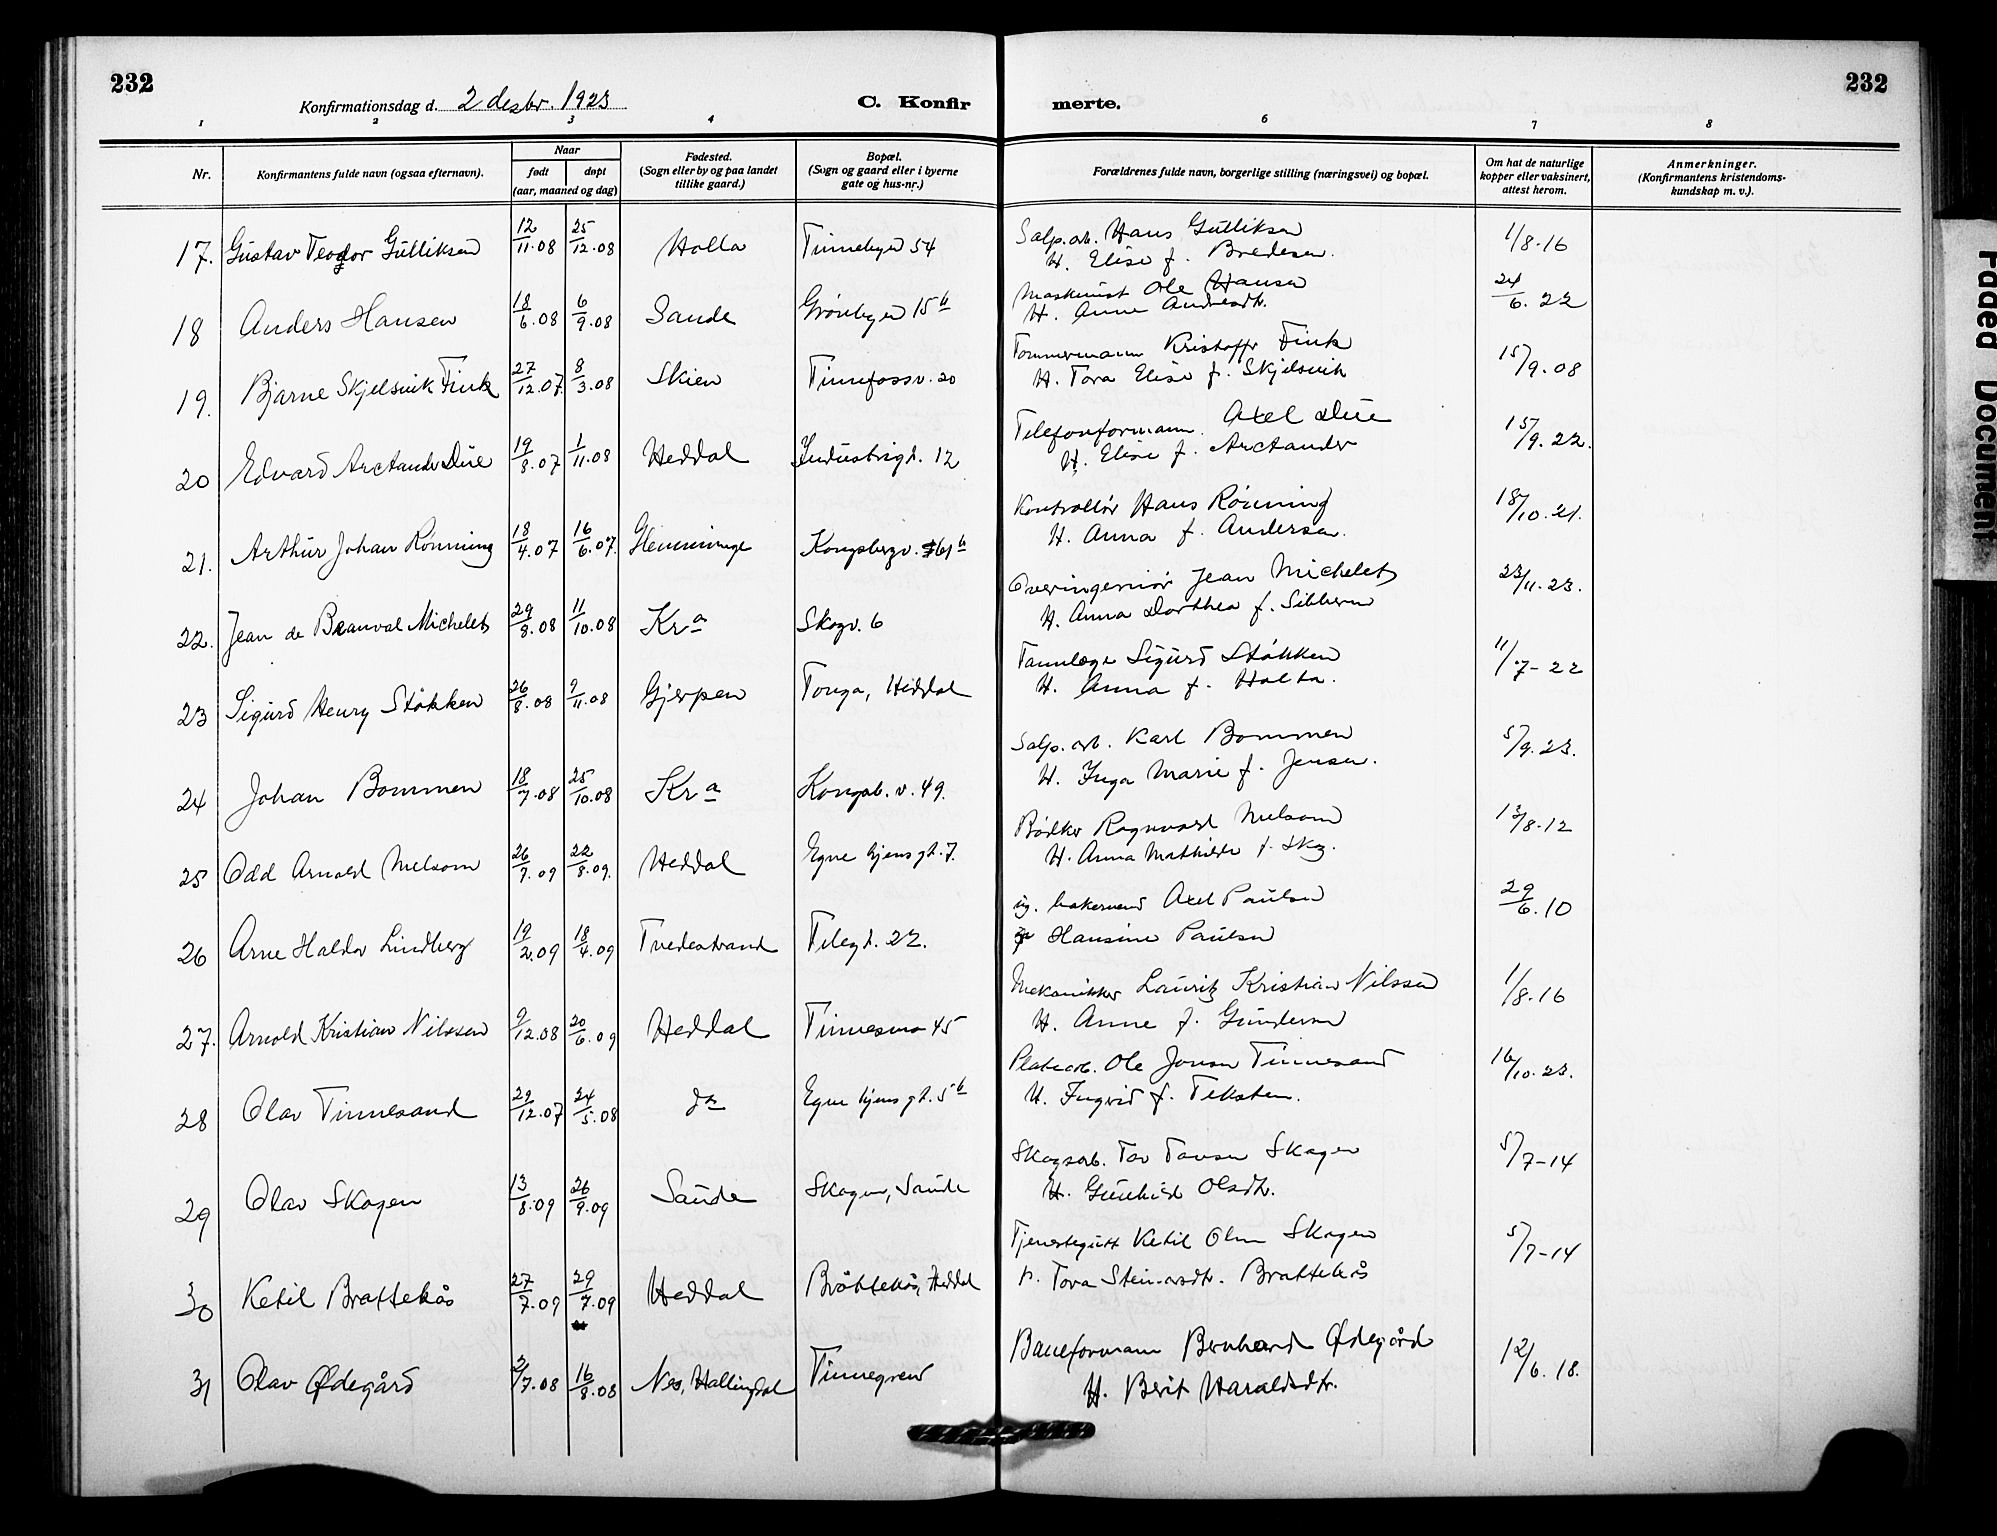 232
232
Konfirmationsdag d. 2 desbr. 1923
C. Konfir
merte.
1 2 3 4 5 6 7 8
Nr. Konfirmantens fulde navn (ogsaa efternavn). Naar født døpt (aar, maaned og dag) Fødested. (Sogn eller by og paa landet tillike gaard.) Bopæl. (Sogn og gaard eller i byerne gate og hus-nr.) Forældrenes fulde navn, borgerlige stilling (næringsvei) og bopæl. Om hat de naturlige kopper eller vaksinert, attest herom. Anmerkninger. (Konfirmantens kristendoms-kundskap m. v.).
17. Gustav Teodor Gulliksen 12/11.08 25/12.08 Holla Tinnebyen 54 Salp.arb. Hans Gulliksen 1/8-16
H. Elise f. Bredesen.
18 Anders Hansen 18/6.08 6/9.08 Sande Grønbyen 15b Maskinist Ole Hansen 24/6.22
H. Anne Andersdtr.
19. Bjarne Skjelsvik Fink 27/12.07. 8/3.08 Skien Tinnfossv. 20 Tømmermann Kristoffr Fink 15/9.08
H. Tora Elise f. Skjelsvik
20 Edvard Arctander Due 19/8.07 1/11.08 Heddal Industrigt. 12 Telefonformann Axel Due 15/9.22.
H. Elise f. Arctander
21. Arthur Johan Rønning 18/4.07 16/6.07. Glemminge Kongsbergv. 61b Kontrollør Hans Rønning 18/10.21.
H. Anna f. Andersen.
22. Jean de Beauval Michelet 29/8.08 11/10.08 Kra Skogv. 6 Overingeniør Jean Michelet 23/11.23.
H. Anna Dorthea f. Sibbern
23 Sigurd Henry Støkken 26/8.08 9/11.08 Gjerpen Tonga, Heddal Tannlæge Sigurd Støkken 11/7-22
H. Anna f. Holta.
24 Johan Bommen 18/7.08 25/10.08 Kra Kongsb. v. 49. Salp.arb. Karl Bommen 5/9.23.
H. Inga Marie f. Jensen.
25 Odd Arnold Melsom 26/7.09 22/8.09. Heddal Egne hjems gt. 7. Bødker Ragnvald Melsom 13/8-12
H. Anna Mathilde f. Skog.
26 Arne Haldor Lindberg 19/2.09 18/4.09 Tvedestrand Telegt. 22. ug. bakersvend Axel Paulsen 29/6.10
p. Hansine Paulsen
27. Arnold Kristian Nilssen 9/12.08 20/6.09 Heddal Tinnesmo 45 Mekanikker Lauritz Kristian Nilssen 1/8.16
H. Anne f. Gundersen
28 Olav Tinnesand 29/12.07 24/5.08 do Egne hjems gt. 5b Platearb. Ole Jonsen Tinnesand 16/10.23.
H. Ingrid f. Teksten.
29 Olav Skogen 13/8.09 26/9.09 Saude Skogen, Saude Skogsarb. Tov Tovsen Skogen 5/7-14
H. Gunhild Olsdtr.
30 Ketil Brattekås 27/7.09 29/7.09 Heddal Brattekås, Heddal Tjenestegutt Ketil Olsen Skogen 5/7-14
p. Tora Steinarsdtr. Brattekås
31 Olav Ødegård 2/7.08 16/8.08 Nes, Hallingdal Tinnegrend Baneformann Bernhard Ødegård 12/6.18.
H. Berit Haraldsdtr.
Faded Document